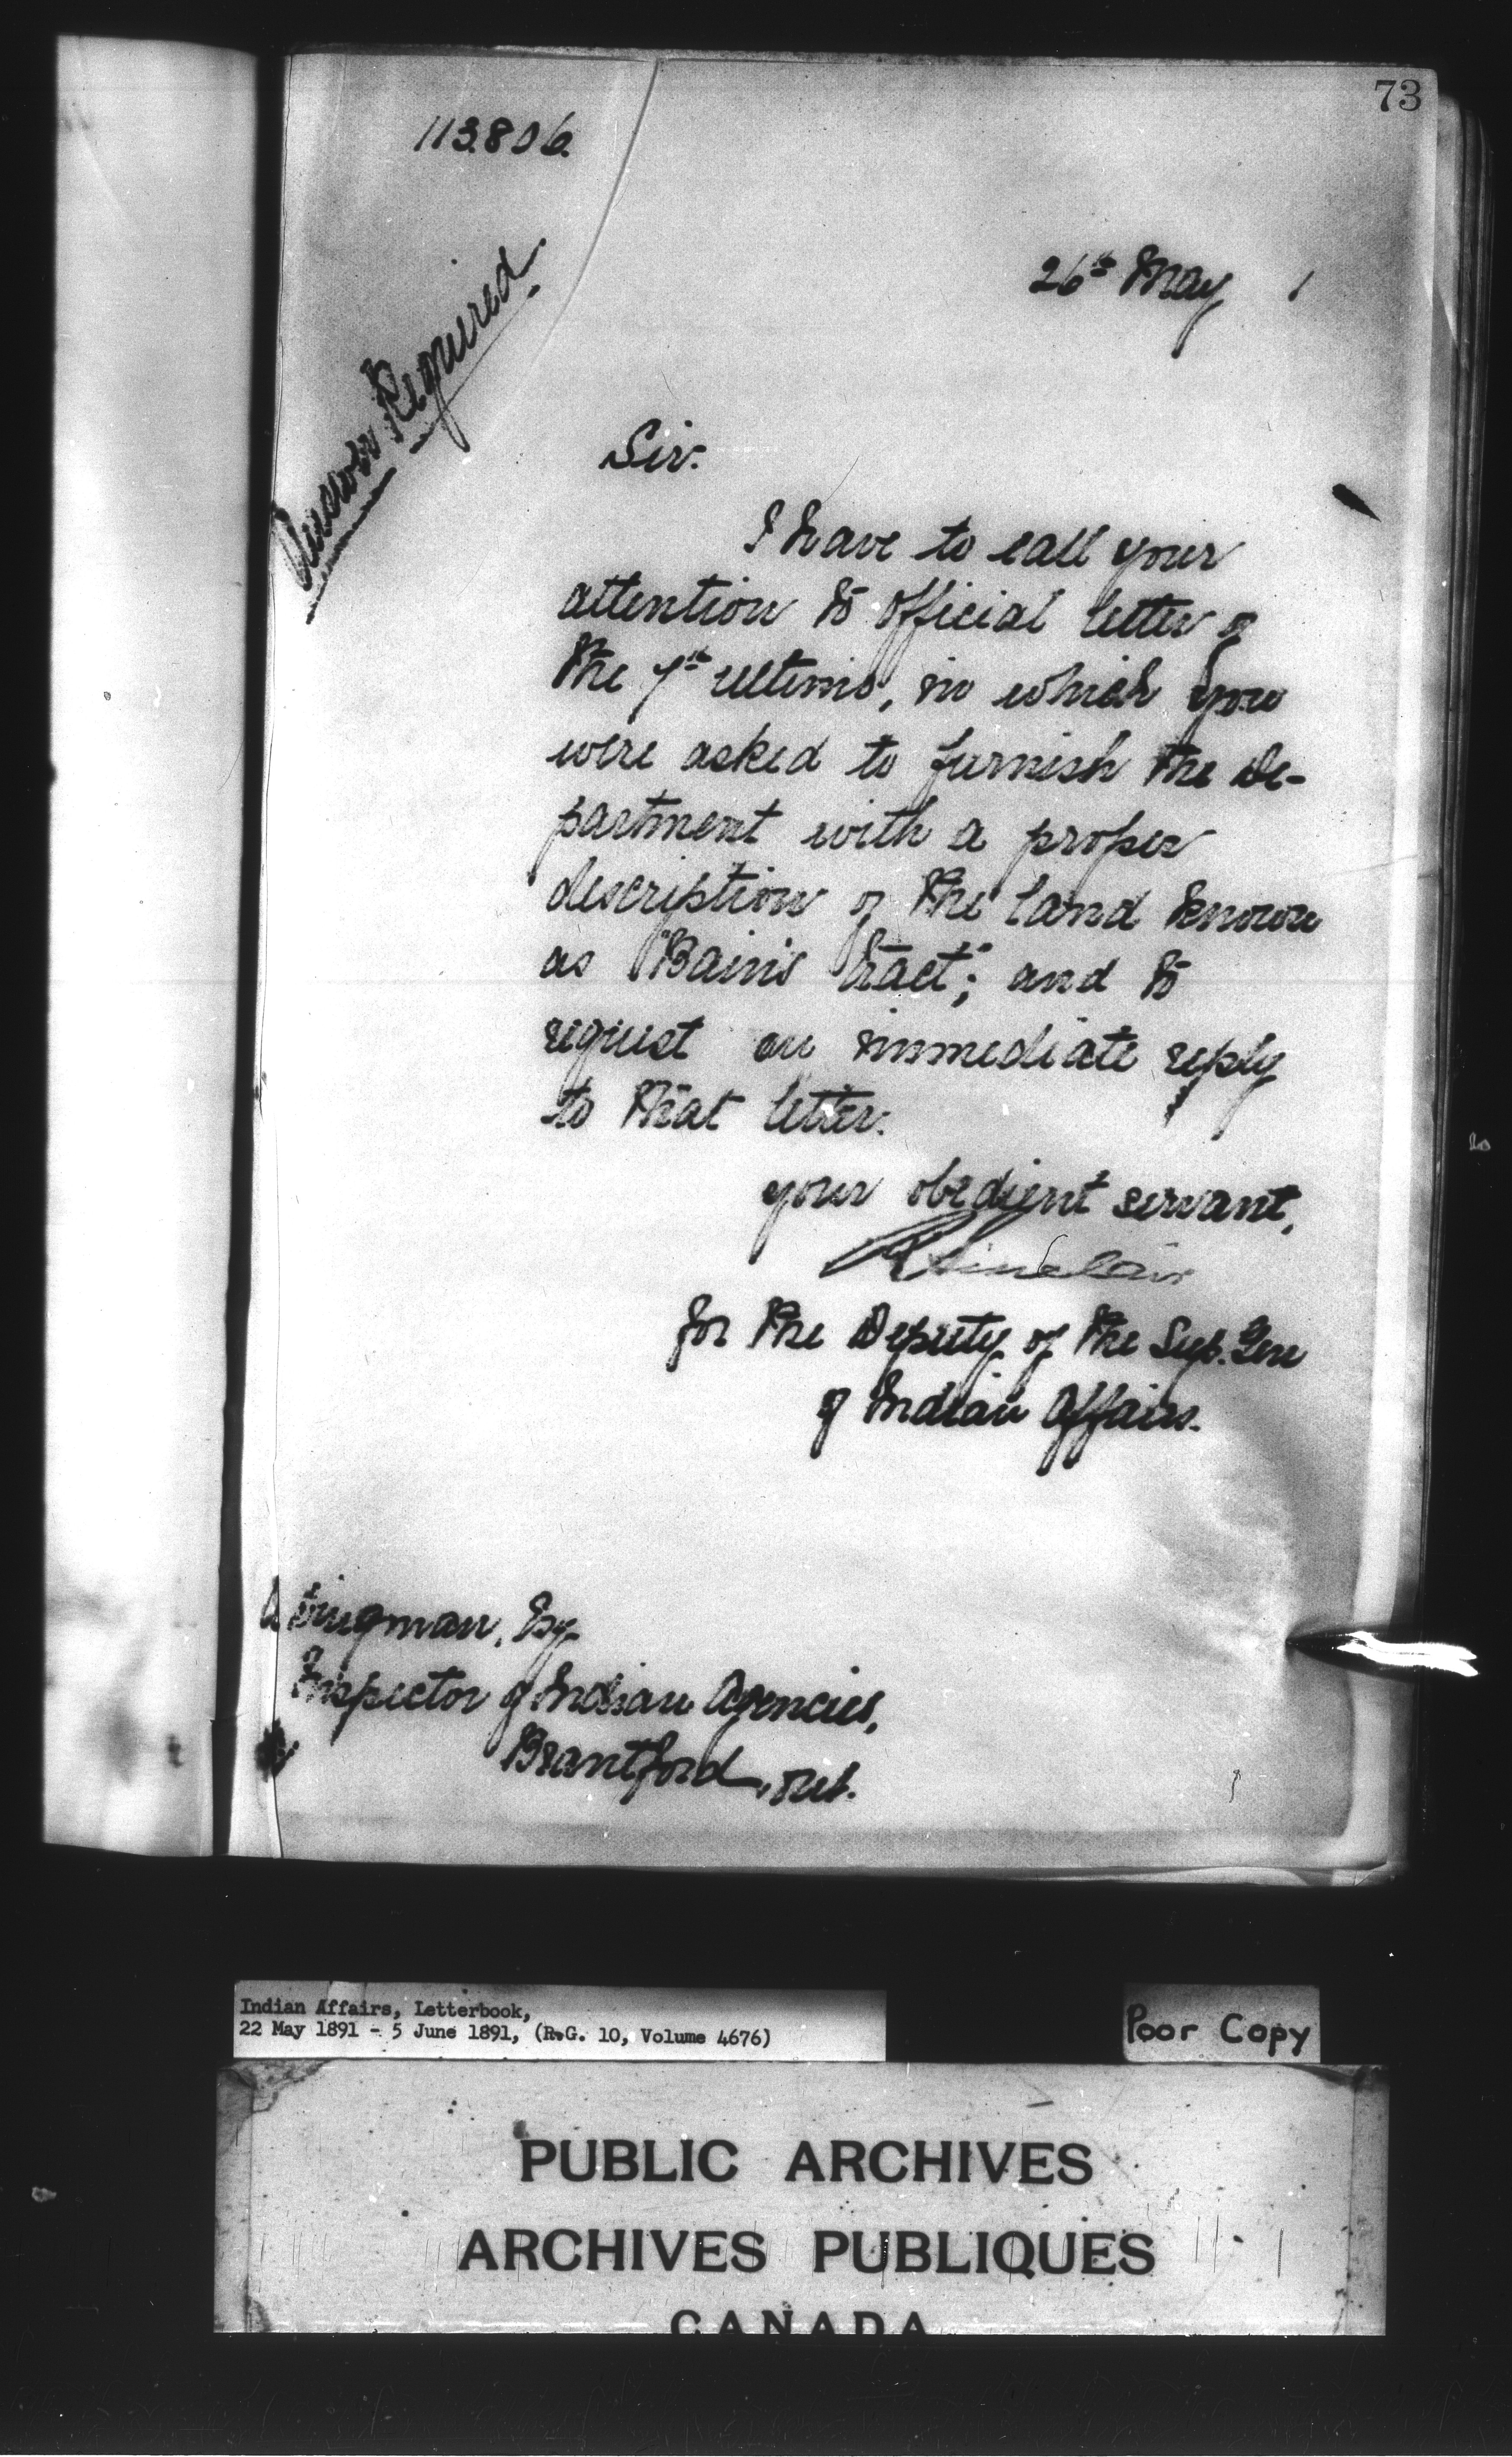 73
113.806.
26th May 1
Answer Required.
Sir.
I have to call your
attention to official letter of
the 7th ultimo, in which you
were asked to furnish the De-
partment with a proper
description of the land known
as "Bain's Tract"; and to
request an immediate reply
to that letter.
your obedient servant,
R Sinclair
for the Deputy of the Sup. Gen
of Indian Affairs.
A Dingman, Esq
Inspector of Indian Agencies,
Brantford, Ont.
Indian Affairs, Letterbook,
22 May 1891 - 5 June 1891, (R.G. 10, Volume 4676)
Poor Copy
PUBLIC ARCHIVES
ARCHIVES PUBLIQUES
CANADA